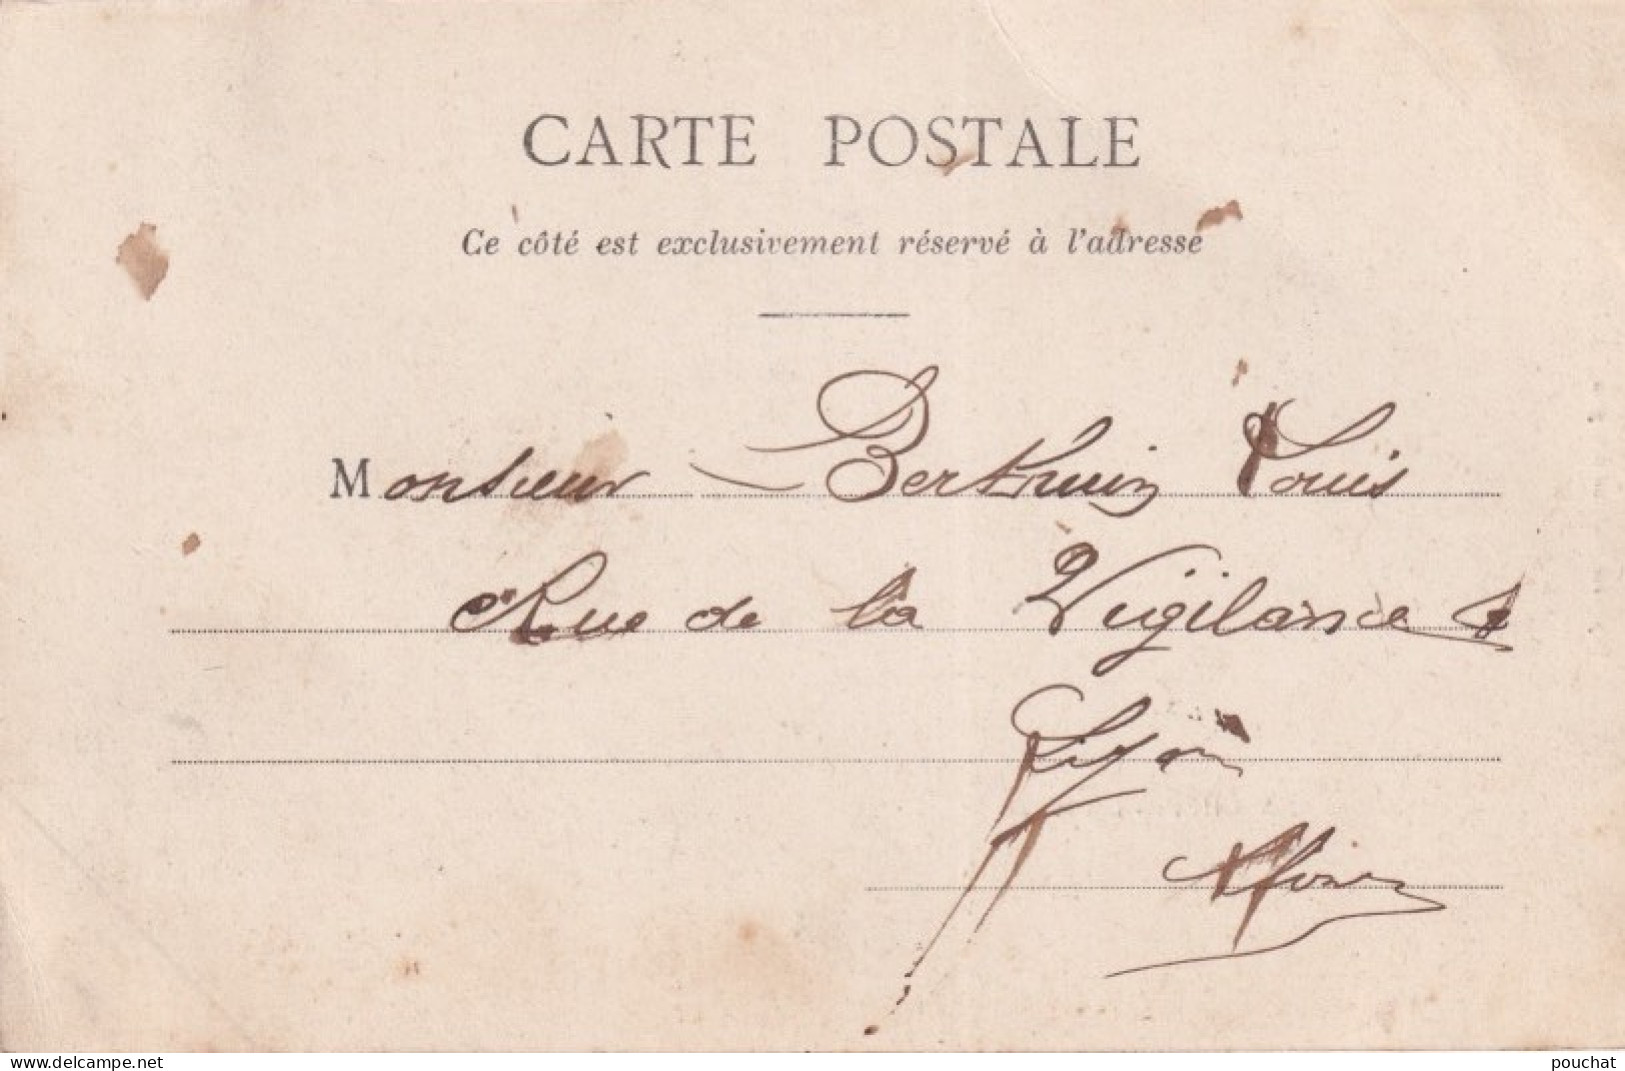 CARTE POSTALE
Ce côté est exclusivement réservé à l'adresse
Monsieur Berthuin Louis
Rue de la Vigilance
Lyon
www.delcampe.net
pouchat